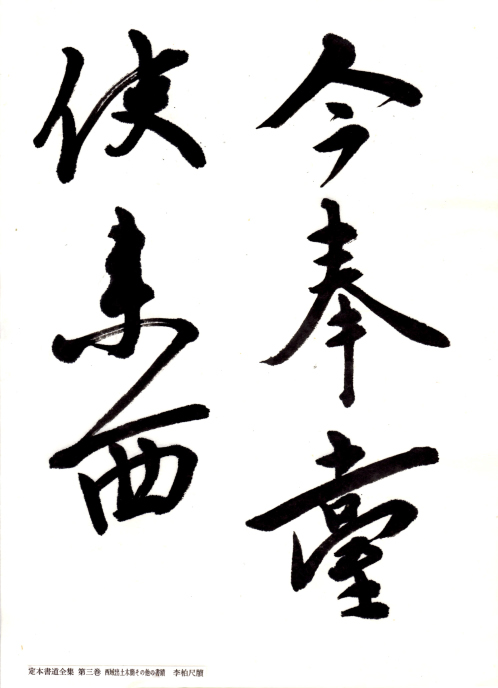 今奉臺
使来西
定本書道全集 第三巻 西域出土木簡その他の書蹟 李柏尺牘